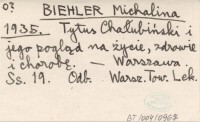 o?
BIEHLER Michalina
1935. Tytus Chałubiński i
jego pogląd na życie, zdrowie
i chorobę. — Warszawa.
Ss. 19. Odb. Warsz. Tow. Lek.